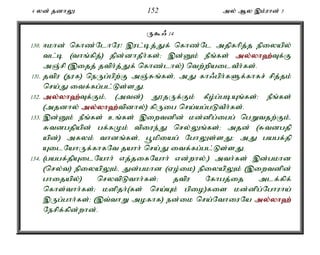 4 லன் தனாலு 152 அல் ஆல இம்ரான் 3
ருகூஃ 14
130. ஈமான் கொண்டோரே! இரட்டித்துக் கொண்டே அதிகரித்த நிலையில்
வட்டி (வாங்கித்) தின்னாதீர்கள்; இன்னும் நீங்கள் அல்லாஹ்வுக்கு
அஞ்சி (இதைத் தவிர்த்துக் கொண்டால்) வெற்றியடைவீர்கள்.
131. தவிர (நரக) நெருப்பிற்கு அஞ்சுங்கள், அது காஃபிர்களுக்காகச் சித்தம்
செய்து வைக்கப்பட்டுள்ளது.
132. அல்லாஹ்வுக்கும், (அவன்) தூதருக்கும் கீழ்ப்படியுங்கள்; நீங்கள்
(அதனால் அல்லாஹ்வினால்) கிருபை செய்யப்படுவீர்கள்.
133. இன்னும் நீங்கள் உங்கள் இறைவனின் மன்னிப்பைப் பெறுவதற்கும்,
சுவனபதியின் பக்கமும் விரைந்து செல்லுங்கள்; அதன் (சுவனபதி
யின்) அகலம் வானங்கள், பூமியைப் போலுள்ளது; அது பயபக்தி
யுடையோருக்காகவே தயார் செய்து வைக்கப்பட்டுள்ளது.
134. (பயபக்தியுடையோர் எத்தகையோர் என்றால்,) அவர்கள் இன்பமான
(செல்வ) நிலையிலும், துன்பமான (ஏழ்மை) நிலையிலும் (இறைவனின்
பாதையில்) செலவிடுவார்கள்; தவிர கோபத்தை அடக்கிக்
கொள்வார்கள்; மனிதர்(கள் செய்யும் பிழை)களை மன்னிப்போராய்
இருப்பார்கள்; (இவ்வாறு அழகாக) நன்மை செய்வோரையே அல்லாஹ்
நேசிக்கின்றான்.